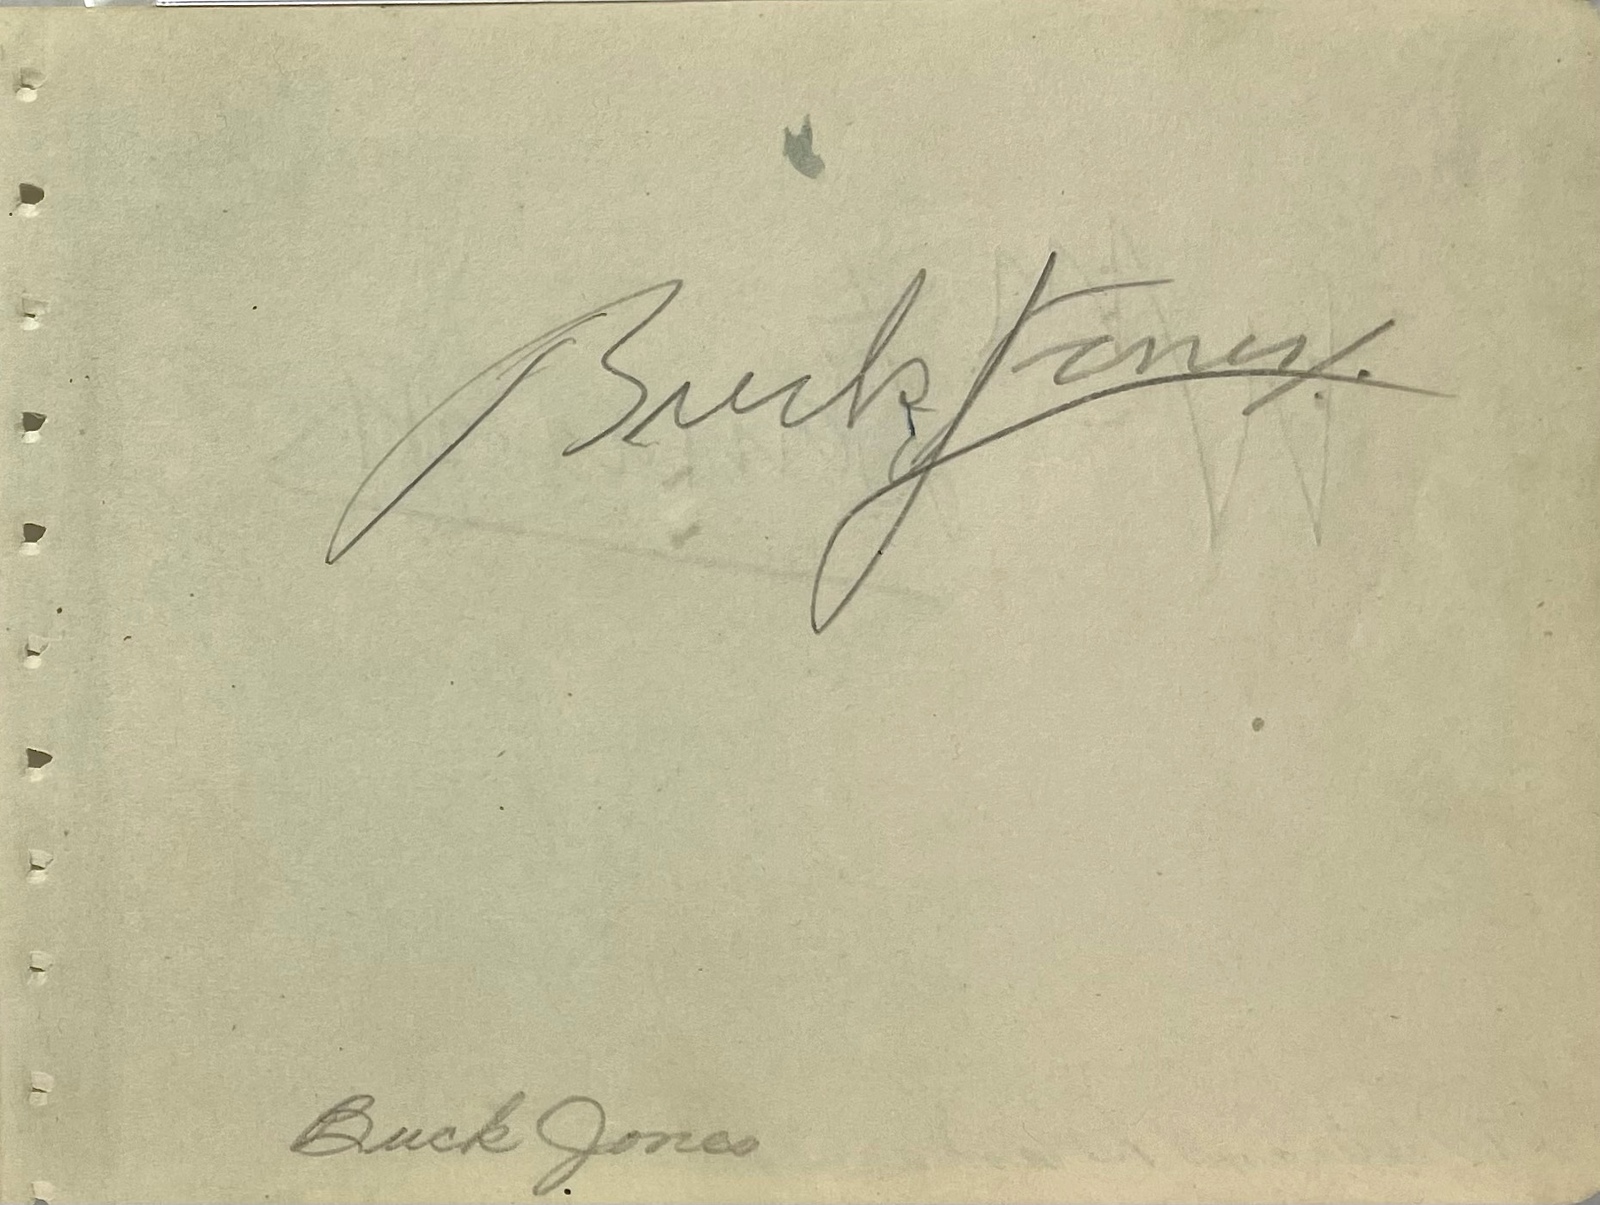 Buck Jones.
Buck Jones